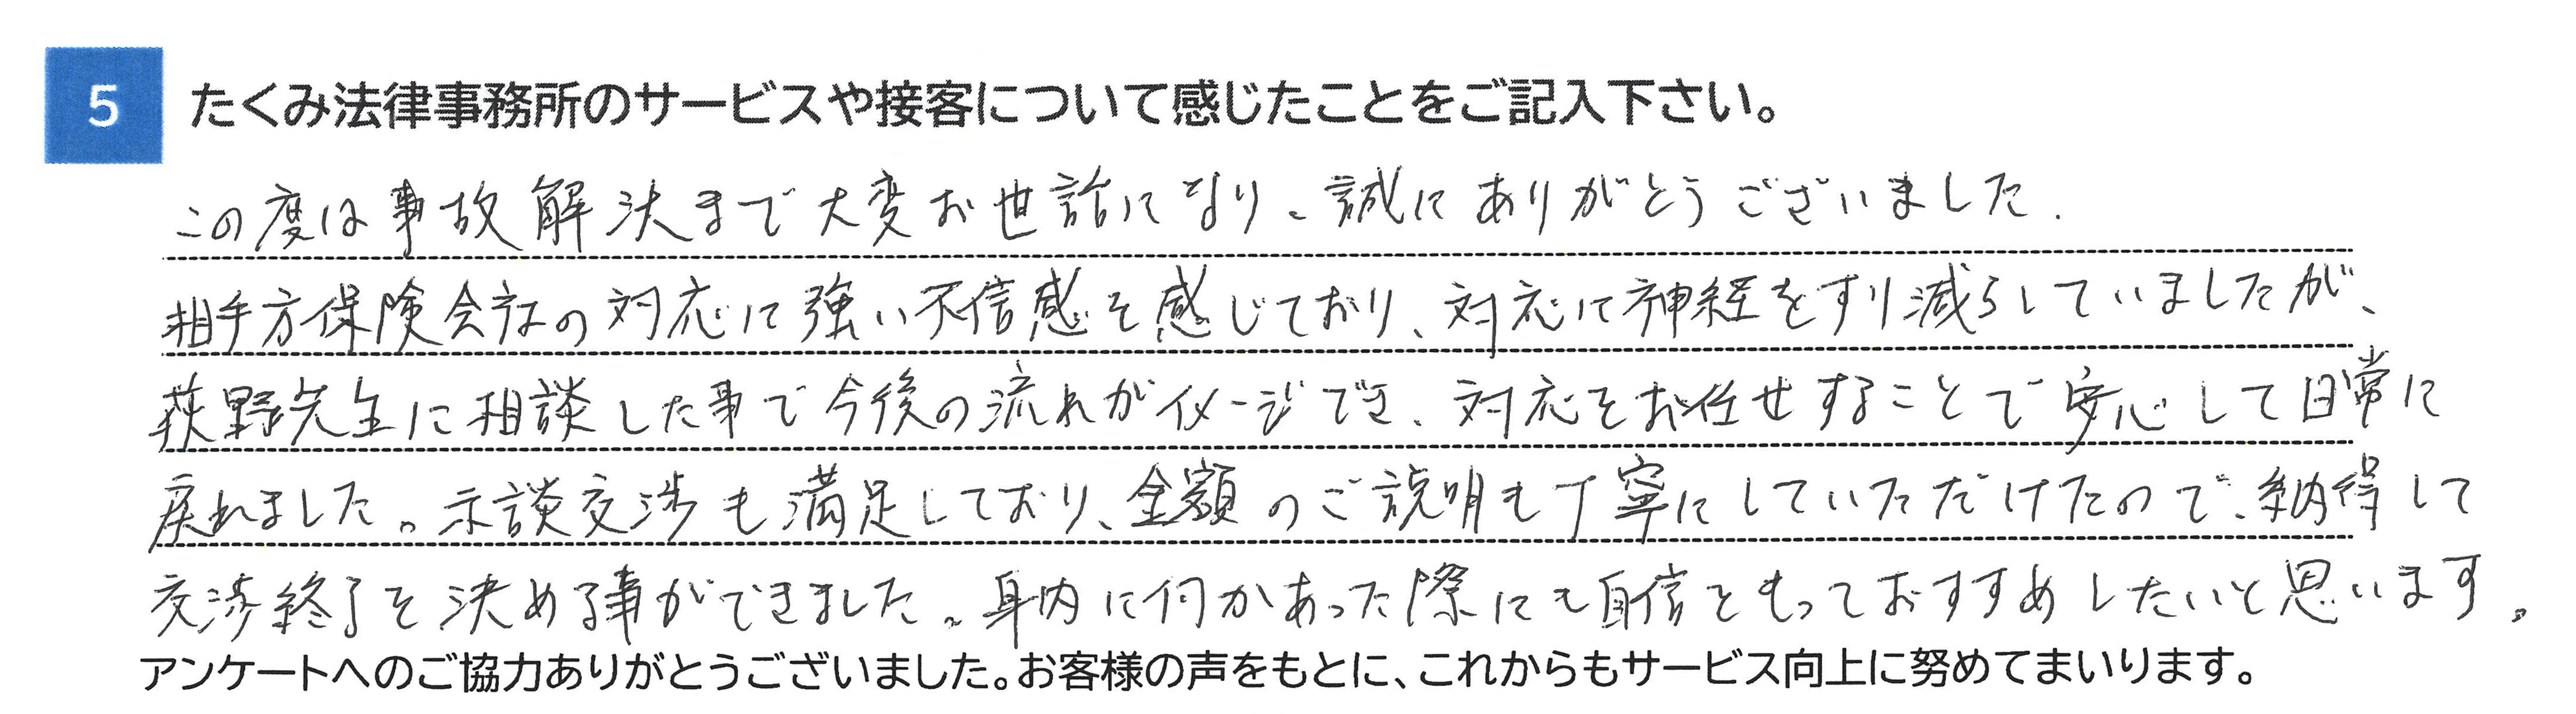 5 たくみ法律事務所のサービスや接客について感じたことをご記入下さい。
この度は事故解決まで大変お世話になり、誠にありがとうございました.
相手方保険会社の対応に強い不信感を感じており、対応に神経をすり減らしていましたが、
荻野先生に相談した事で今後の流れがイメージでき、対応をお任せすることで安心して日常に
戻れました。示談交渉も満足しており、金額のご説明も丁寧にしていただけたので、納得して
交渉終了を決める事ができました。身内に何かあった際にも自信をもっておすすめしたいと思います。
アンケートへのご協力ありがとうございました。お客様の声をもとに、これからもサービス向上に努めてまいります。